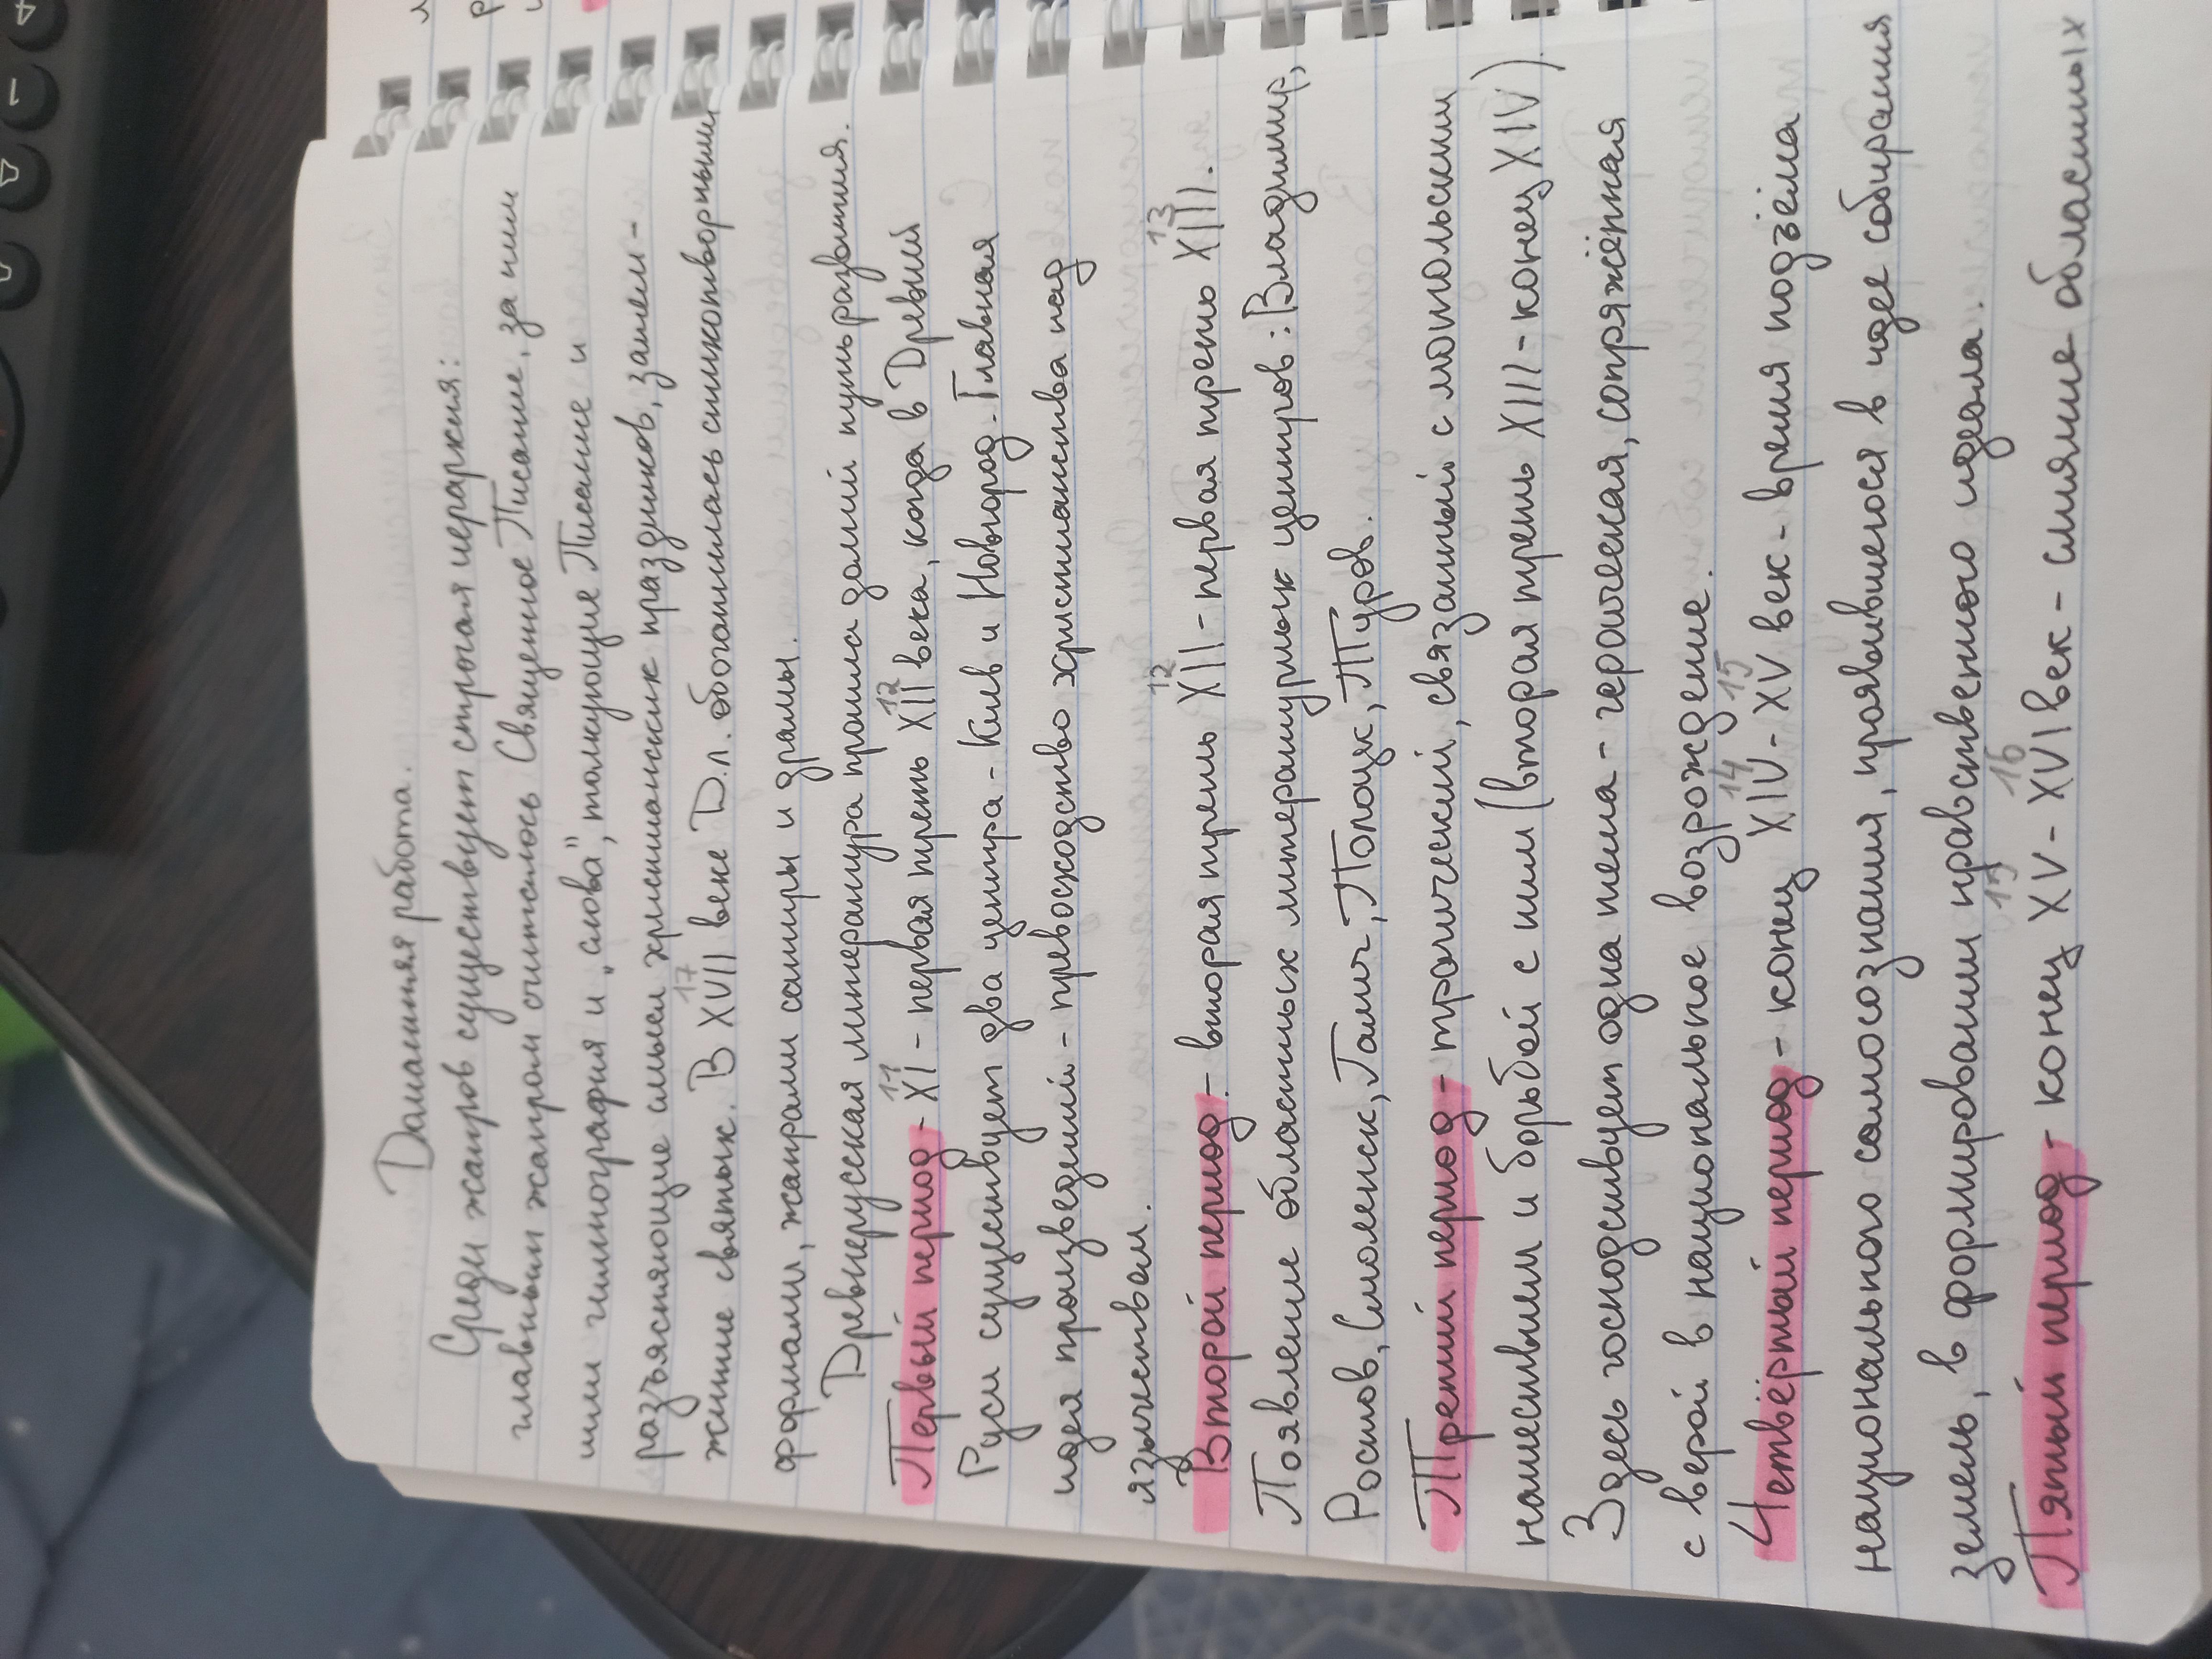 Домашняя работа.
Среди жанров существует строгая иерархия:
главным жанром считалось Священное Писание, за ним
шли гимнография и „слова", толкующие Писание и
разъясняющие смысл христианских праздников, затем -
житие святых. В XVII веке Д.л. обогатилась стихотворными
17
формами, жанрами сатиры и драмы.
Древнерусская литература прошла долгий путь развития.
Первый период - XI - первая треть XII века, когда в Древней
11 12
Руси существует два центра - Киев и Новгород. Главная
идея произведений - превосходство христианства над
язычеством.
Второй период - вторая треть XII - первая треть XIII.
12 13
Появление областных литературных центров: Владимир,
Ростов, Смоленск, Галич, Полоцк, Туров.
Третий период - трагический, связанный с монгольским
нашествием и борьбой с ним (вторая треть XIII - конец XIV).
Здесь господствует одна тема - героическая, сопряжённая
с верой в национальное возрождение.
Четвёртый период - конец XIV - XV век - время подъёма
14 15
национального самосознания, проявившегося в идее собирания
земель, в формировании нравственного идеала.
Пятый период - конец XV - XVI век - слияние областных
15 16